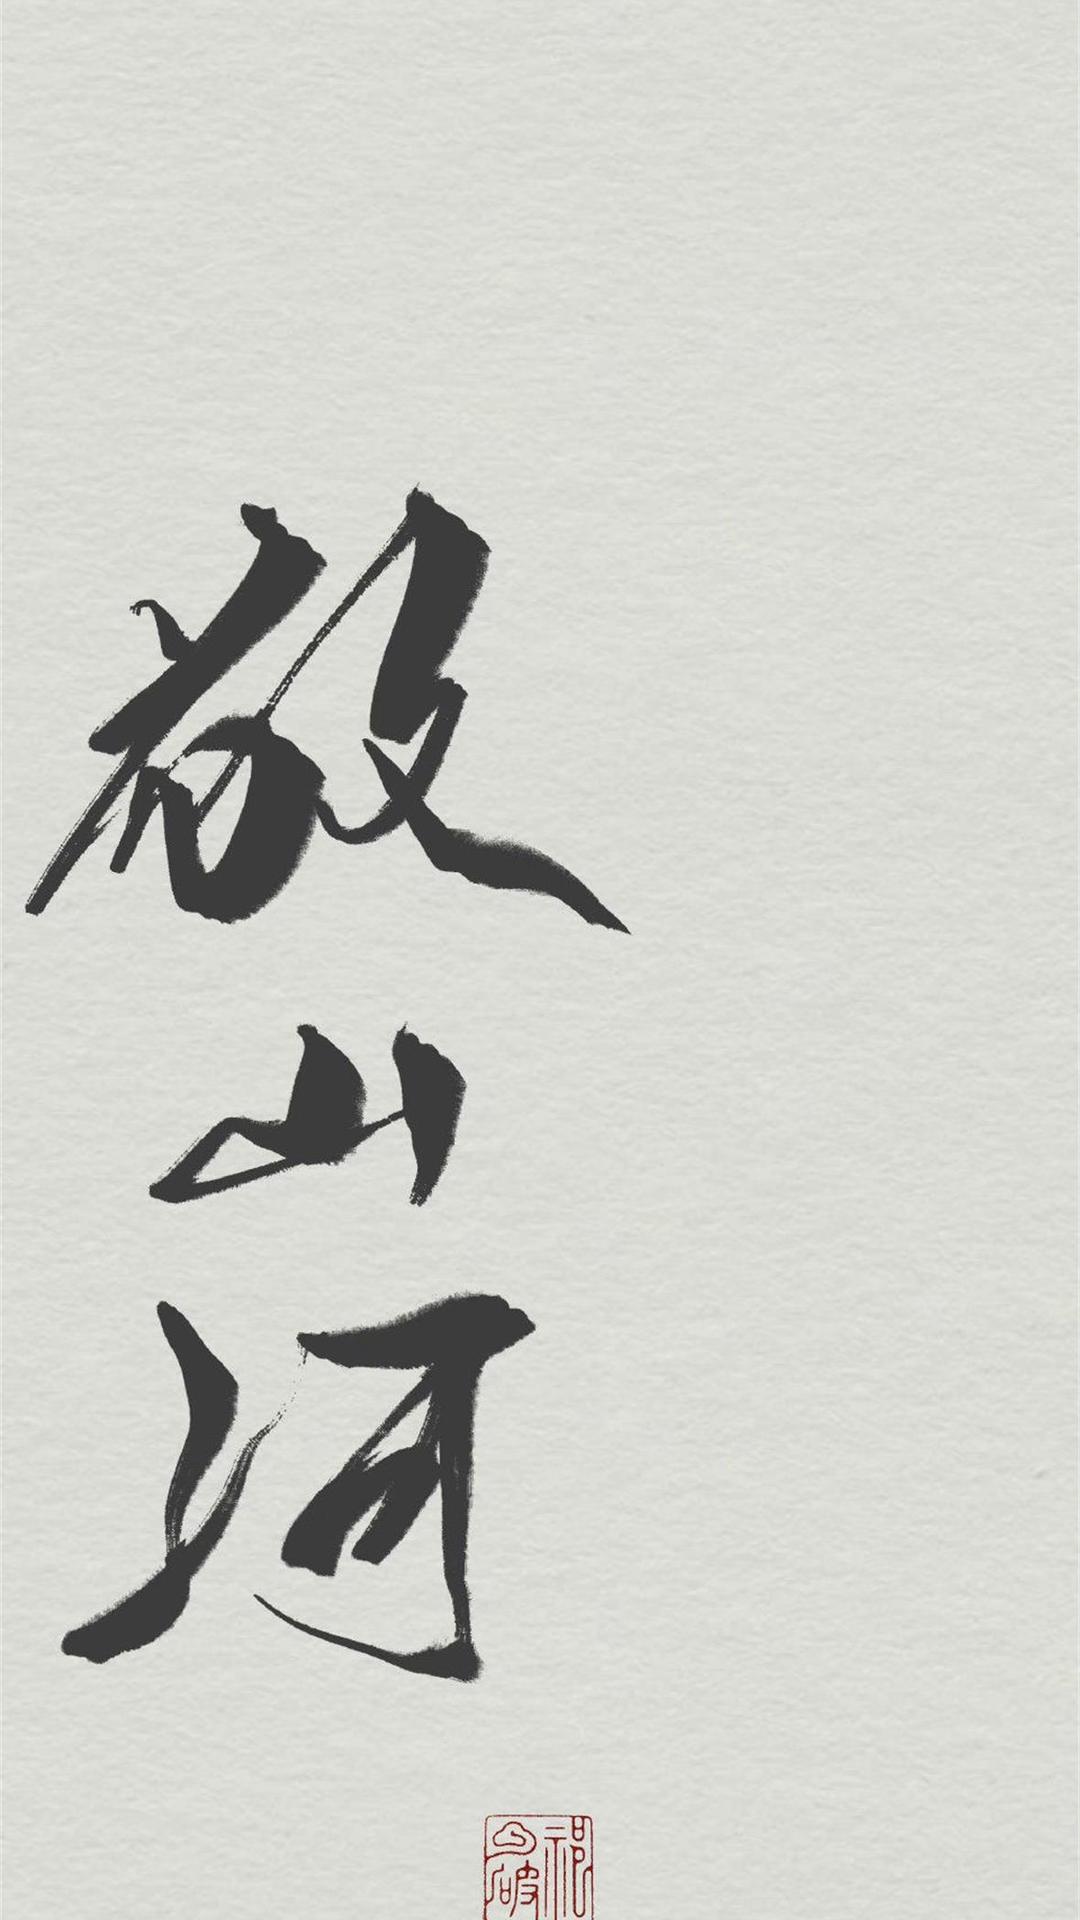 敬山河